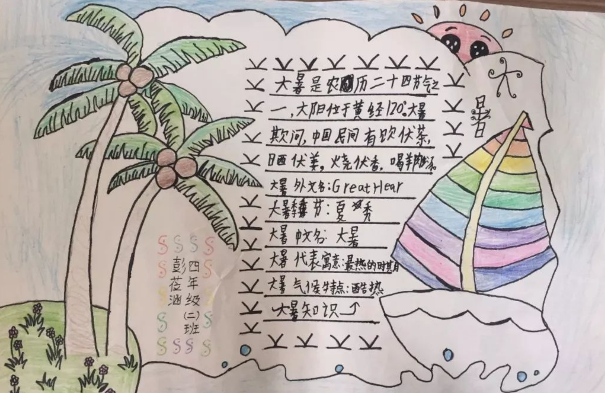 大暑
大暑是农历二十四节气之
一,大阳位于黄经120°。大暑
期间,中国民间有饮伏茶,
晒伏姜,烧伏香,喝羊肉汤
大暑外文名:Great Hear
大暑季节:夏季
大暑中文名:大暑
大暑代表寓意:最热的时期
大暑气候特点:酷热
大暑知识
四年级(二)班
彭莅涵